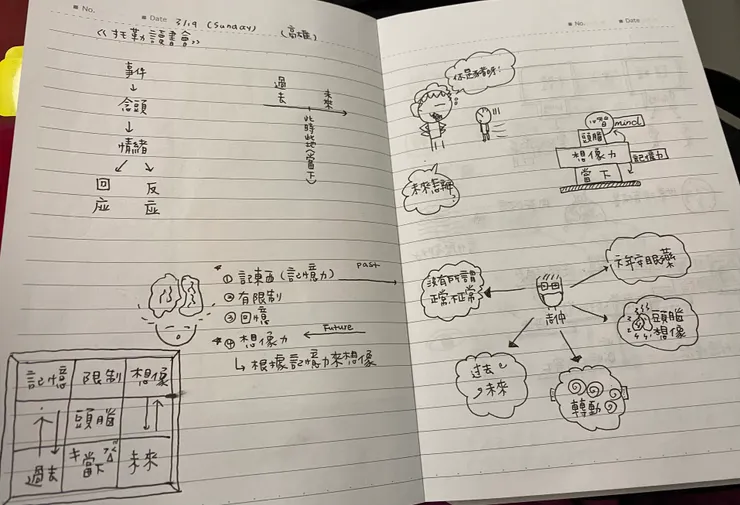 ■ No.
■ Date 3/19 (Sunday) (高雄)
《托勒讀書會》
事件
念頭
情緒
回應
反應
過去
未來
此時此地(當下)
① 記東西(記憶力)
past
② 有限制
③ 回憶
④ 想像力
Future
根據記憶力來想像
記憶 限制 想像
頭腦
過去 當下 未來
■ No.
■ Date
你是誰呀!
mind
頭腦
想像力
記憶力
當下
沒有所謂
正常.不正常
頭腦
想像
過去
未來
轉動